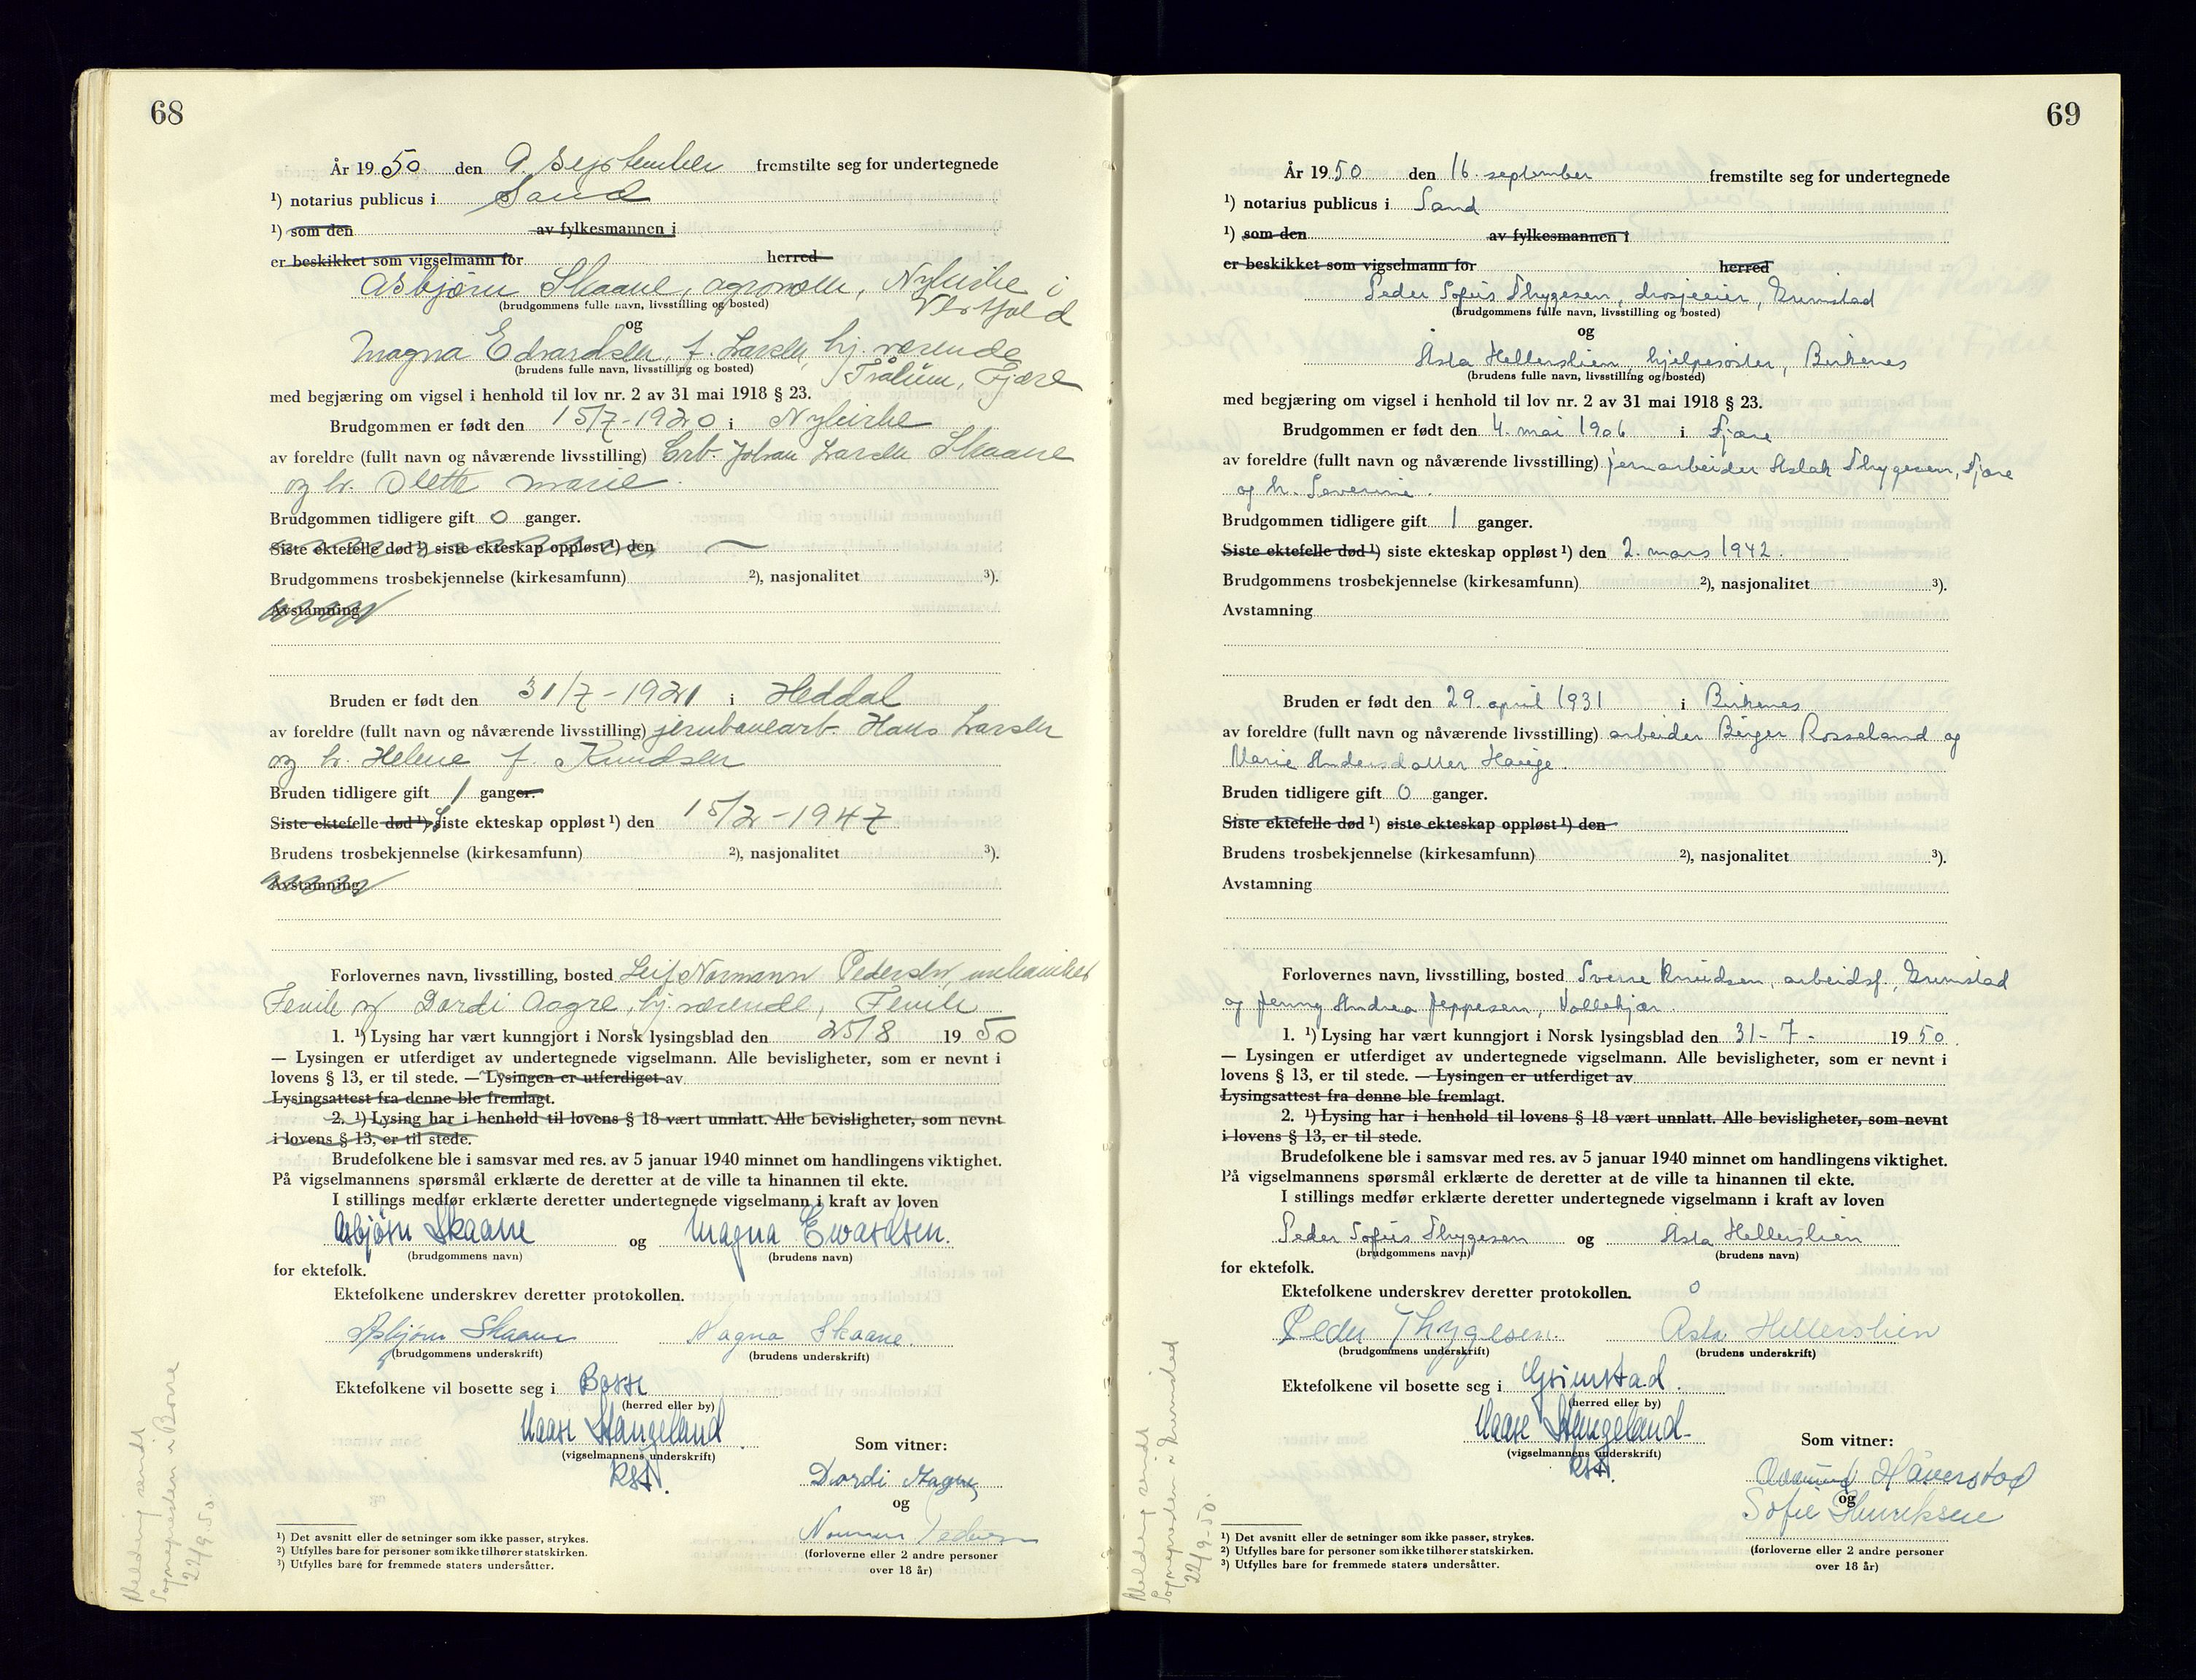 68
År 1950 den 9. September fremstilte seg for undertegnede
¹) notarius publicus i Sand
¹) som den av fylkesmannen i
er beskikket som vigselmann for herred
Asbjørn Skaane, agronom, Nykirke i
(brudgommens fulle navn, livsstilling og bosted) Vestfold
og
Magna Edvardsen, f. Larsen, hj. værende
(brudens fulle navn, livsstilling og bosted) Fjære
med begjæring om vigsel i henhold til lov nr. 2 av 31 mai 1918 § 23.
Brudgommen er født den 15/7-1920 i Nykirke
av foreldre (fullt navn og nåværende livsstilling) Johan Larsen Skaane
og h. Olette Marie.
Brudgommen tidligere gift 0 ganger.
Siste ektefelle død ¹) siste ekteskap oppløst ¹) den —
Brudgommens trosbekjennelse (kirkesamfunn) ²), nasjonalitet ³).
Avstamning
Bruden er født den 31/7-1921 i Heddal
av foreldre (fullt navn og nåværende livsstilling) jernbanearb. Hans Larsen
og h. Helene f. Knudsen
Bruden tidligere gift 1 ganger.
Siste ektefelle død ¹) Siste ekteskap oppløst ¹) den 15/2-1947
Brudens trosbekjennelse (kirkesamfunn) ²), nasjonalitet ³).
Avstamning
Forlovernes navn, livsstilling, bosted Leif Normann Pedersen, mekaniker
Fevik og Dordi Aagre, hj. værende, Fevik
1. ¹) Lysing har vært kunngjort i Norsk lysingsblad den 25/8 1950
— Lysingen er utferdiget av undertegnede vigselmann. Alle bevisligheter, som er nevnt i
lovens § 13, er til stede. — Lysingen er utferdiget av
Lysingsattest fra denne ble fremlagt.
2. ¹) Lysing har i henhold til lovens § 18 vært unnlatt. Alle bevisligheter, som nevnt
i lovens § 13, er til stede.
Brudefolkene ble i samsvar med res. av 5 januar 1940 minnet om handlingens viktighet.
På vigselmannens spørsmål erklærte de deretter at de ville ta hinannen til ekte.
I stillings medfør erklærte deretter undertegnede vigselmann i kraft av loven
Asbjörn Skaane og Magna Edvardsen.
(brudgommens navn) (brudens navn)
for ektefolk.
Ektefolkene underskrev deretter protokollen.
Asbjørn Skaane Magna Skaane.
(brudgommens underskrift) (brudens underskrift)
Ektefolkene vil bosette seg i Borre
(herred eller by)
Stangeland
(vigselmannens underskrift) Som vitner:
Dordi Aagre
og
Normann Pedersen
(forloverne eller 2 andre personer
over 18 år)
¹) Det avsnitt eller de setninger som ikke passer, strykes.
²) Utfylles bare for personer som ikke tilhører statskirken.
³) Utfylles bare for fremmede staters undersåtter.
Melding sendt
Sognepresten i Borre
22/9.50.
69
År 1950 den 16. september fremstilte seg for undertegnede
¹) notarius publicus i Sand
¹) som den av fylkesmannen i
er beskikket som vigselmann for herred
Peder Sofus Thygesen, drosjeeier, Grimstad
(brudgommens fulle navn, livsstilling og bosted)
og
Asta Hellerslien, hjelpesøster, Birkenes
(brudens fulle navn, livsstilling og bosted)
med begjæring om vigsel i henhold til lov nr. 2 av 31 mai 1918 § 23.
Brudgommen er født den 4. mai 1906 i Fjære
av foreldre (fullt navn og nåværende livsstilling) jernarbeider Aslak Thygesen, Fjære
og h. Severine.
Brudgommen tidligere gift 1 ganger.
Siste ektefelle død ¹) siste ekteskap oppløst ¹) den 2. mars 1942.
Brudgommens trosbekjennelse (kirkesamfunn) ²), nasjonalitet ³).
Avstamning
Bruden er født den 29. april 1931 i Birkenes
av foreldre (fullt navn og nåværende livsstilling) arbeider Birger Rosseland og
Marie Andersdatter Hauge.
Bruden tidligere gift 0 ganger.
Siste ektefelle død ¹) siste ekteskap oppløst ¹) den
Brudens trosbekjennelse (kirkesamfunn) ²), nasjonalitet ³).
Avstamning
Forlovernes navn, livsstilling, bosted Sverre Knudsen, arbeidsf., Grimstad
og Jenny Andrea Jeppesen, Vollekjær.
1. ¹) Lysing har vært kunngjort i Norsk lysingsblad den 31-7- 1950.
— Lysingen er utferdiget av undertegnede vigselmann. Alle bevisligheter, som er nevnt i
lovens § 13, er til stede. — Lysingen er utferdiget av
Lysingsattest fra denne ble fremlagt.
2. ¹) Lysing har i henhold til lovens § 18 vært unnlatt. Alle bevisligheter, som nevnt
i lovens § 13, er til stede.
Brudefolkene ble i samsvar med res. av 5 januar 1940 minnet om handlingens viktighet.
På vigselmannens spørsmål erklærte de deretter at de ville ta hinannen til ekte.
I stillings medfør erklærte deretter undertegnede vigselmann i kraft av loven
Peder Sofus Thygesen og Asta Hellerslien
(brudgommens navn) (brudens navn)
for ektefolk.
Ektefolkene underskrev deretter protokollen.
Peder Thygesen. Asta Hellerslien
(brudgommens underskrift) (brudens underskrift)
Ektefolkene vil bosette seg i Grimstad.
(herred eller by)
Stangeland
(vigselmannens underskrift) Som vitner:
Håverstad
og
Sofie Henriksen
(forloverne eller 2 andre personer
over 18 år)
¹) Det avsnitt eller de setninger som ikke passer, strykes.
²) Utfylles bare for personer som ikke tilhører statskirken.
³) Utfylles bare for fremmede staters undersåtter.
Melding sendt
Sognepresten i Grimstad
22/9-50.